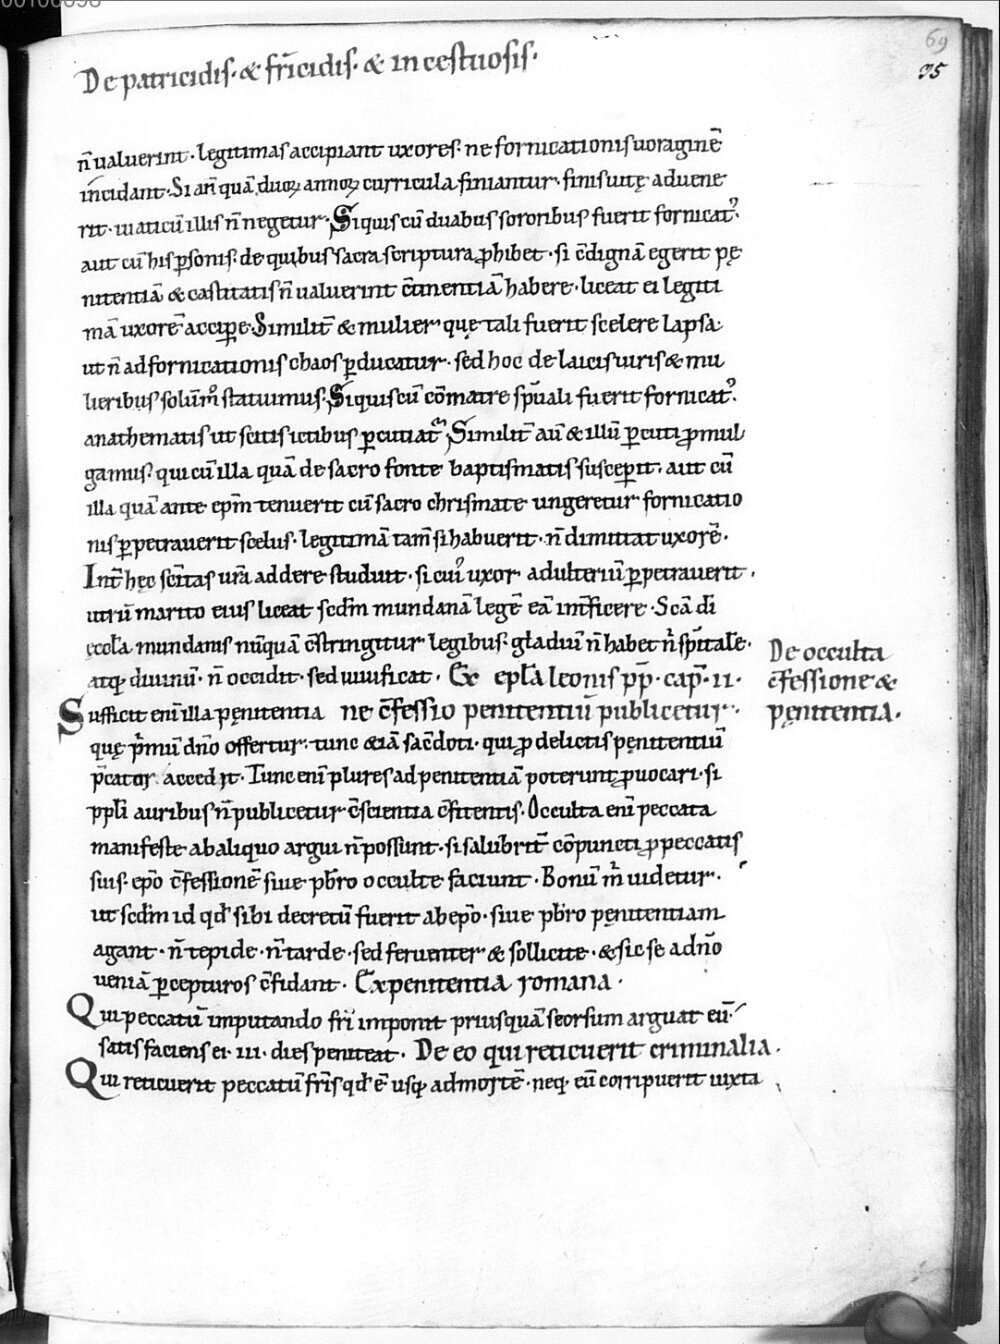 69
35
De patricidis· & fr̄icidis· & incestuosis·
n̄ ualuerint· legitimas accipiant uxores· ne fornicationis uoraginē
incidant· Si an̄ quā duoꝝ annoꝝ curricula finiantur· finis uitę aduene
rit· uiaticū illis n̄ negetur· Siquis cū duabus sororibus fuerit fornicat᾽·
aut cū his ꝑsonis· de quibus sacra scriptura ꝓhibet· si c̄dignā egerit pę
nitentiā & castitatis n̄ ualuerint c̄tinentiā habere· liceat ei legiti
mā uxorē accipe· Similit̄ & mulier quę tali fuerit scelere lapsa·
ut n̄ ad fornicationis chaos ꝑducatur· sed hoc de laicis uiris & mu
lieribus solūm̊ statuimus· Siquis cū cōmatre sp̄uali fuerit fornicat᾽·
anathematis ut scitis ictibus ꝑcutiat᷑· Similit̄ aū & illū ꝑcuti ꝓmul
gamus· qui cū illa quā de sacro fonte baptismatis suscepit· aut cū
illa quā ante ep̄m tenuerit cū sacro chrismate ungeretur fornicatio
nis ꝑpetrauerit scelus· legitimā tam̄ si habuerit· n̄ dimittat uxorē·
Int̄ hęc sc̄itas ur̄a addere studuit· si cui᾽ uxor adulteriū ꝑpetrauerit·
utrū marito eius liceat scdm̄ mundanā legē eā int̄ficere· Scā di
ęccl̄a mundanis nūquā c̄stringitur legibus· gladiū n̄ habet n̄ sp̄itale·
atq; diuinū· n̄ occidit· sed uiuificat· Ex epl̄a leonis pp̄· cap̄· ii·
Sufficit enī illa pęnitentia ne c̄fessio penitentiū publicetur·
quę p̄mū dn̄o offertur· tunc &iā sac̄doti· qui ꝓ delictis pęnitentiū
p̄cator accedit· Tunc enī plures ad penitentiā poterunt ꝓuocari· si
ppl̄i auribus n̄ publicetur c̄scientia c̄fitentis· Occulta enī peccata
manifeste ab aliquo argui n̄ possunt· si salubrit̄ cōpuncti ꝓ peccatis
suis· ep̄o c̄fessionē siue pb̄ro occulte faciunt· Bonū m̄ uidetur·
ut scdm̄ id qd̄ sibi decretū fuerit ab ep̄o· siue pb̄ro pęnitentiam
agant· n̄ tepide· n̄ tarde· sed feruenter & sollicite· & sic se a dn̄o
ueniā ꝑcepturos c̄fidant· Ex penitentia romana·
Qui peccatū imputando fr̄i imponit priusquā seorsum arguat eū·
satisfaciens ei· iii· dies peniteat· De eo qui reticuerit criminalia·
Qui reticuerit peccatū fr̄is qd̄ ē usq; ad mortē· neq; eū corripuerit iuxta
De occulta
c̄fessione &
pęnitentia·